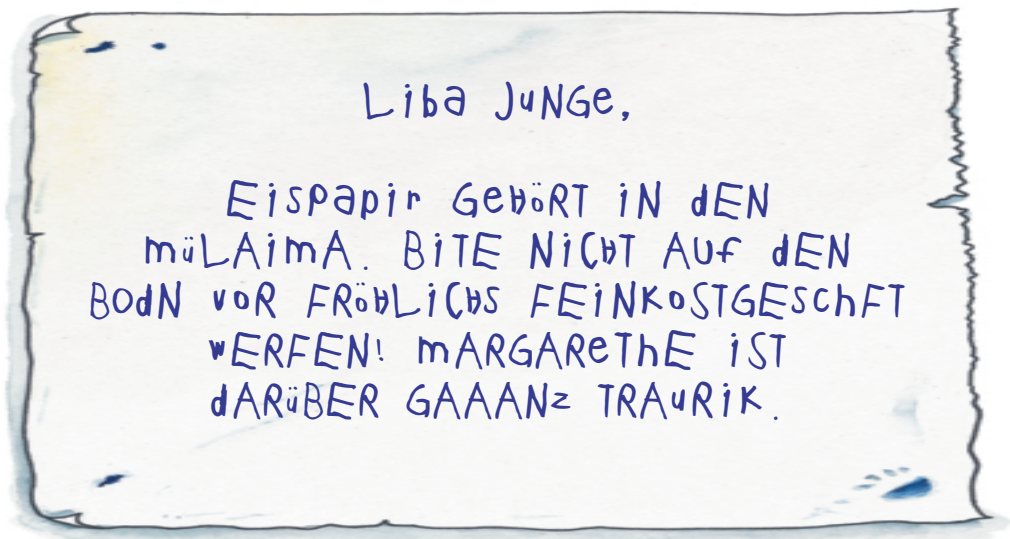 Liba JuNGe,
EisPaPir GeHöRT iN dEN
müLAimA. BiTE NiCHT AUf dEN
BOdN voR FRöHLiCHs FEiNKoSTGEschFT
wERFEN! mARGAReThE iST
dARüBER GAAANz TRAuRiK.